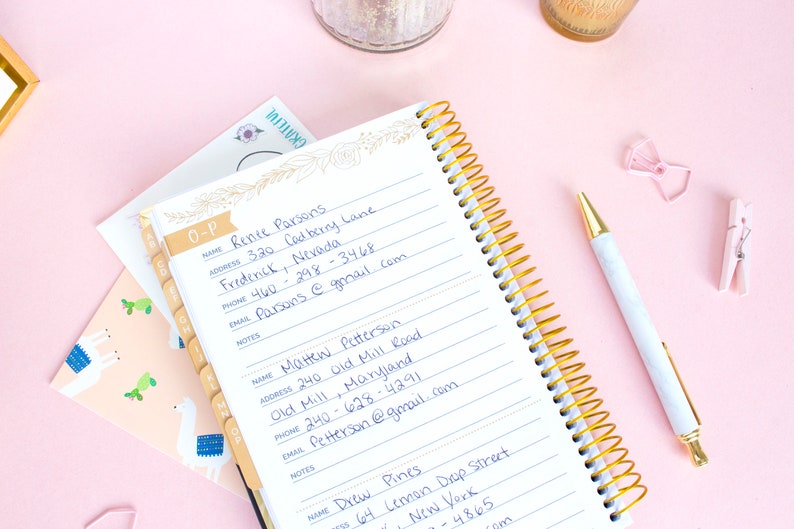 GRATEFUL
O-P
NAME Renee Parsons
ADDRESS 320 Cadberry Lane
Frederick, Nevada
PHONE 460-298-3468
EMAIL Parsons@gmail.com
NOTES
NAME Mattew Petterson
ADDRESS 240 Old Mill Road
Old Mill, Maryland
PHONE 240-628-4291
EMAIL Petterson@gmail.com
NOTES
NAME Drew Pines
ADDRESS 64 Lemon Drop Street
New York
4865
.com
AB
CD
EF
GH
IJ
KL
MN
OP